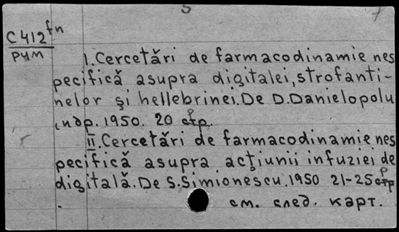 С412 fn
рум
I. Cercetări de farmacodinamie nes
pecifică asupra digitalei, strofanti-
nelor şi hellebrinei. De D. Danielopolu
и др. 1950. 20 стр.
II. Cercetări de farmacodinamie nes
pecifică asupra acţiunii infuziei de
digitală. De S. Simionescu. 1950 21-25 стр
см. след. карт.